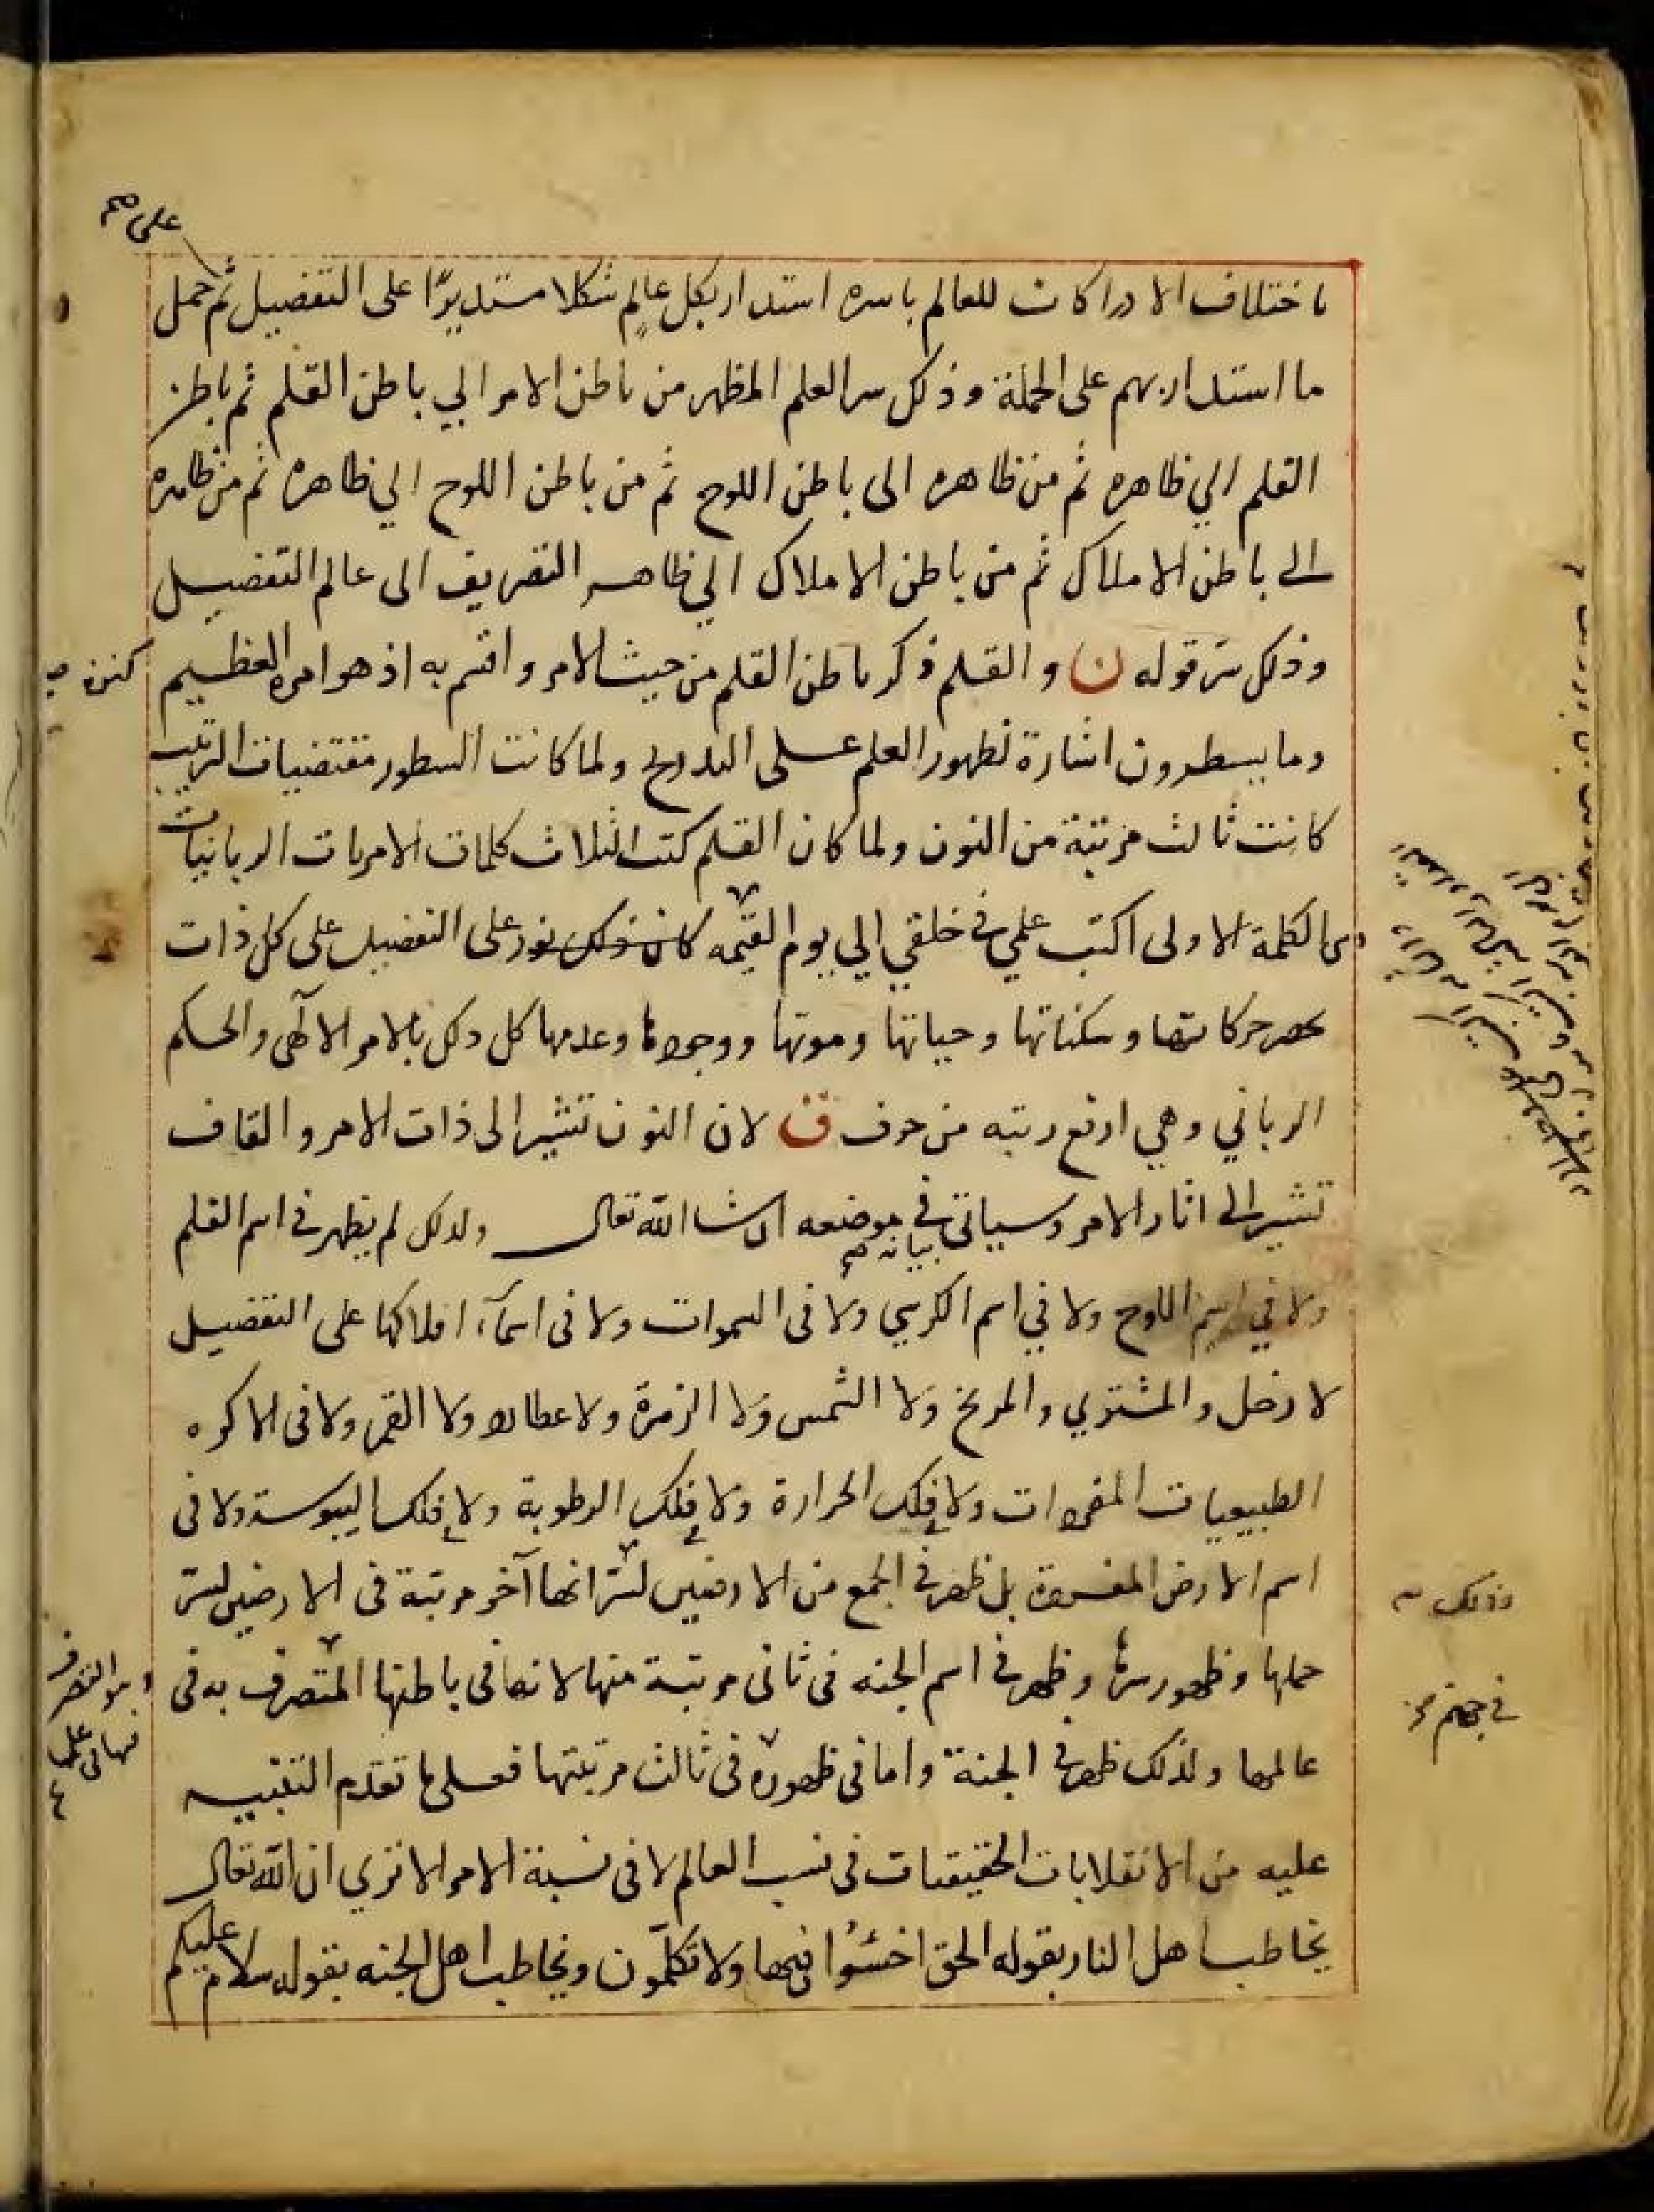 باختلاف الادراكات للعالم باسره استدار بكل عالم شكلا مستديرًا على التفصيل ثم حمل
ما استدار بهم على الجملة وذلك سر العلم المظهر من باطن الامر الي باطن القلم ثم باطن
القلم الي ظاهره ثم من ظاهره الى باطن اللوح ثم من باطن اللوح الي ظاهره ثم من ظاهره
الى باطن الاملاك ثم من باطن الاملاك الي ظاهر التصريف الى عالم التفصيل
وذلك سر قوله ن والقلم ذكر باطن القلم من حيث الامر واقسم به اذ هو امره العظيم
وما يسطرون اشارة لظهور العلم على اللوح ولما كانت السطور مقتضيات الترتيب
كانت ثالث مرتبة من النون ولما كان القلم كتب الثلاث كلمات الامريات الربانيات
الكلمة الاولى اكتب علمي في خلقي الي يوم القيمه كان ذلك نور على التفصيل على كل ذات
حركاتها وسكناتها وحياتها وموتها ووجودها وعدمها كل ذلك بالامر الالهي والحكم
الرباني وهي ارفع رتبه من حرف ق لان النون تشير الى ذات الامر والقاف
تشير الى اثار الامر وسياتي في موضعه ان شا الله تعالى ولذلك لم يظهر في اسم القلم
بيانه
ولا في اسم اللوح ولا في اسم الكرسي ولا في السموات ولا في اسماء افلاكها على التفصيل
لا زحل والمشتري والمريخ ولا الشمس ولا الزهرة ولا عطارد ولا القمر ولا في الاكره
الطبيعيات المفردات ولا فلك الحرارة ولا فلك الرطوبة ولا فلك اليبوسة ولا في
اسم الارض المفردة بل ظهر في الجمع من الارضين لسر انها آخر مرتبة في الارضين لسر
حملها وظهور سرها وظهر في اسم الجنه في ثاني مرتبة منها لانها في باطنها المتصرف به في
عالمها ولذلك ظهر في الجنة واما في ظهوره في ثالث مرتبتها فعلى ما تقدم التنبيه
عليه من الانقلابات الحقيقيات في نسب العالم لا في نسبة الامر الا تري ان الله تعالى
يخاطب اهل النار بقوله الحق اخسئوا فيها ولا تكلمون ويخاطب اهل الجنه بقوله سلام عليكم
على
وذلك
في جهنم